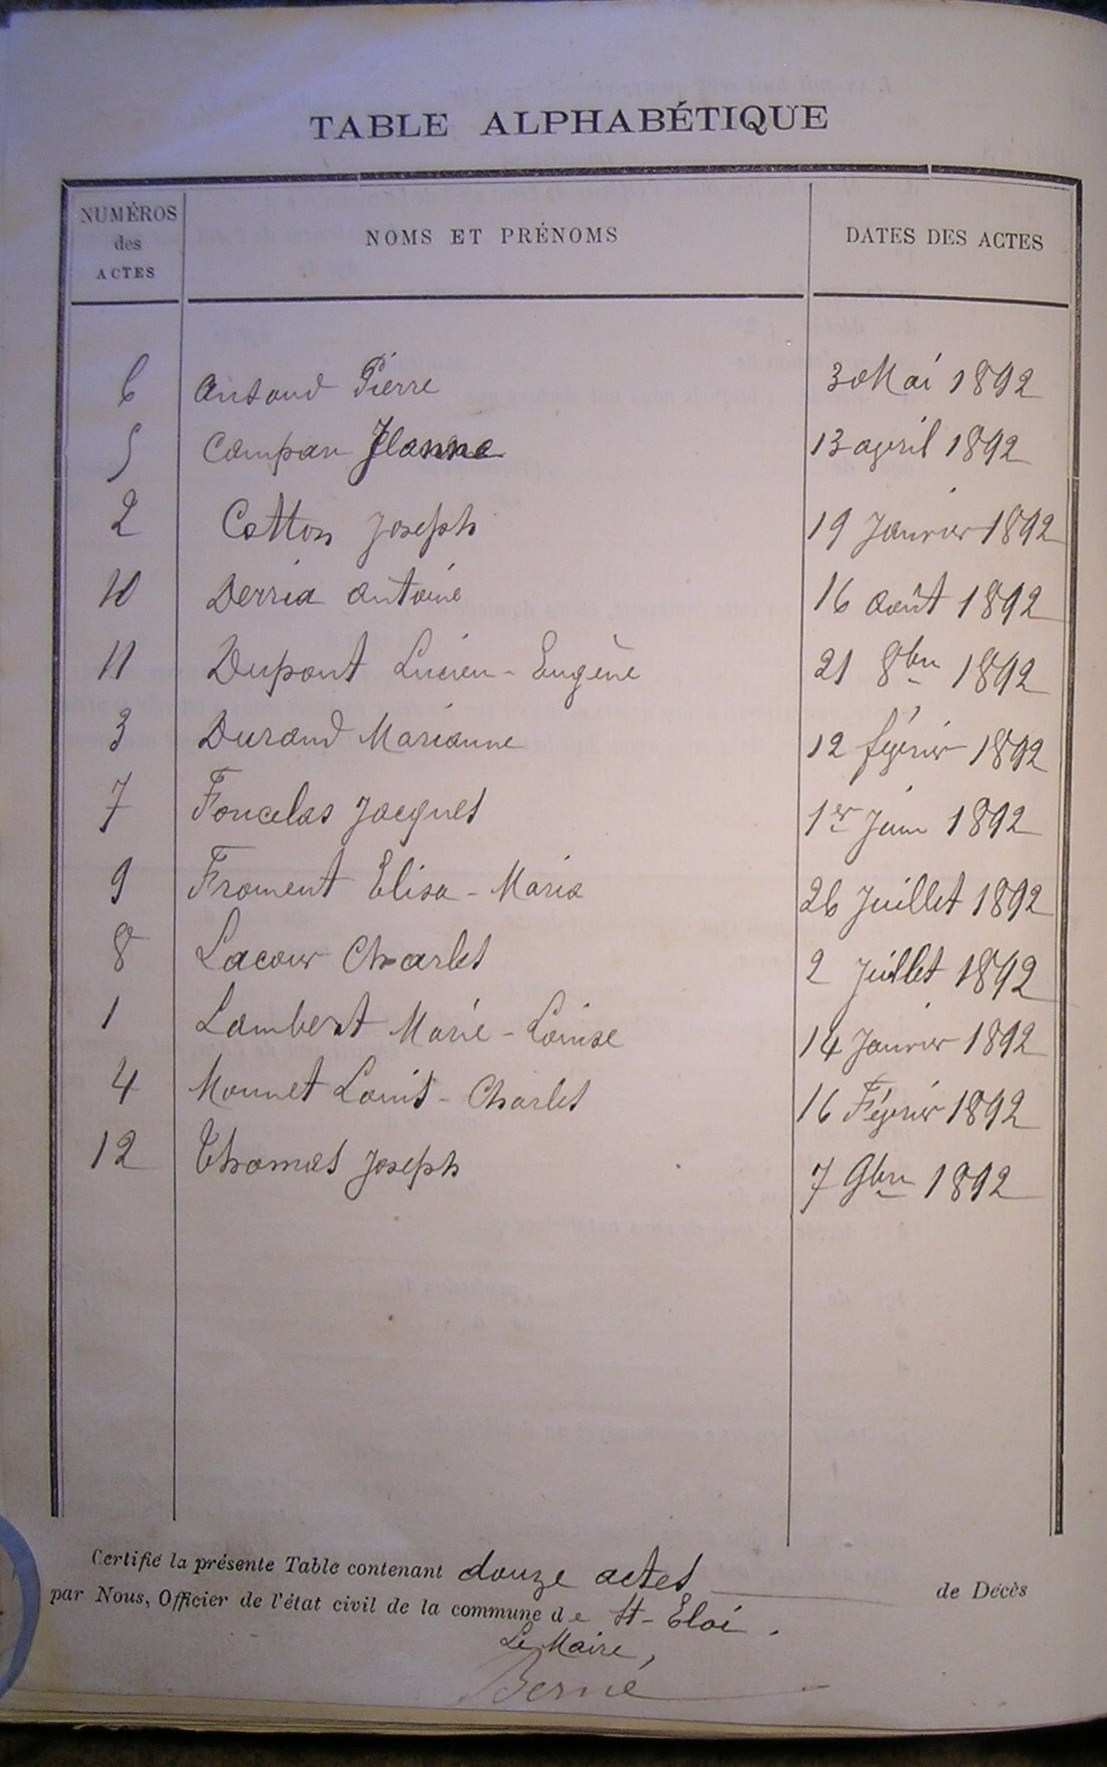 TABLE ALPHABÉTIQUE
NUMÉROS des ACTES NOMS ET PRÉNOMS DATES DES ACTES
6 Antoud Pierre 30 Mai 1892
5 Campan Jeanne 13 april 1892
2 Cotton Joseph 19 Janvier 1892
10 Derria Antoine 16 Août 1892
11 Dupont Lucien-Eugène 21 8bre 1892
3 Durand Marianne 12 février 1892
7 Foucelas Jacques 1er Juin 1892
9 Froment Elisa-Maria 26 Juillet 1892
8 Lacour Charles 2 Juillet 1892
1 Lambert Marie-Louise 14 Janvier 1892
4 Monnet Louis-Charles 16 Février 1892
12 Thomas Joseph 7 9bre 1892
Certifié la présente Table contenant douze actes de Décès
par Nous, Officier de l'état civil de la commune de St-Eloi.
Le Maire,
Berne